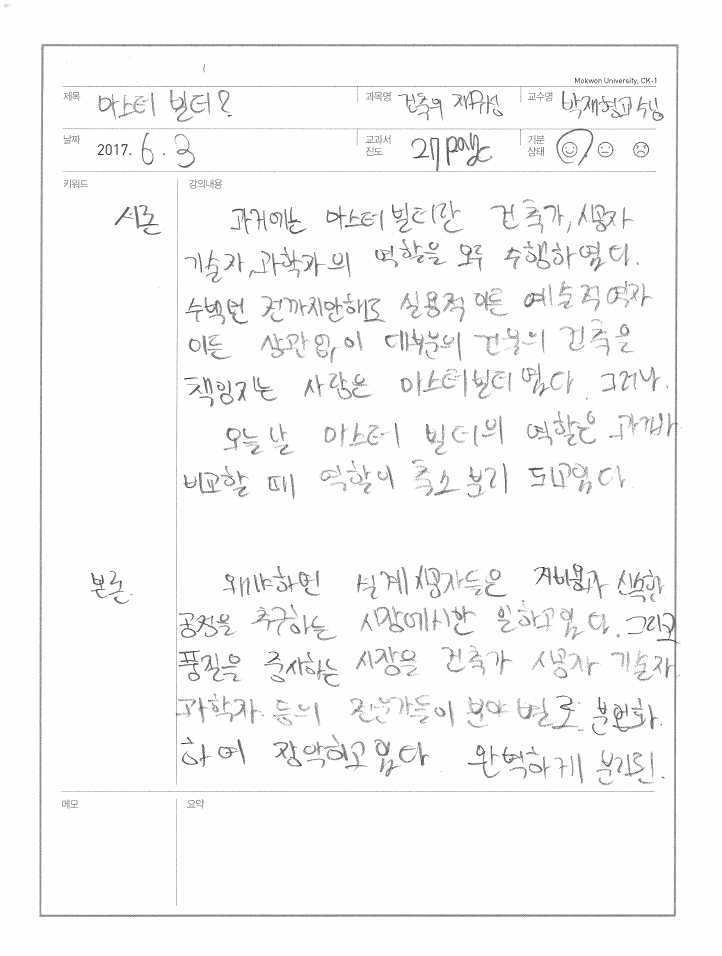 Mokwon University, CK-1
제목 마스터 빌더? 과목명 건축의 재구성 교수명 박재형교수님
날짜 2017. 6. 3 교과서 진도 27page 기분 상태
키워드 강의내용
서론 과거에는 마스터빌더란 건축가, 시공자
기술자, 과학자의 역할을 모두 수행하였다.
수백년 전까지만해도 실용적이든 예술적이자
이든 상관없이 대부분의 건물의 건축을
책임지는 사람은 마스터빌더였다. 그러나.
오늘날 마스터 빌더의 역할은 과거와
비교할 때 역할이 축소 분리 되고있다.
본론. 왜냐하면 설계시공자들은 저비용과 신속한
공정을 추구하는 시장에서만 일하고있다. 그리고
품질을 중시하는 시장을 건축가 시공자 기술자
과학자 등의 전문가들이 분야별로 분업화
하여 장악하고있다 완벽하게 분리된.
메모 요약